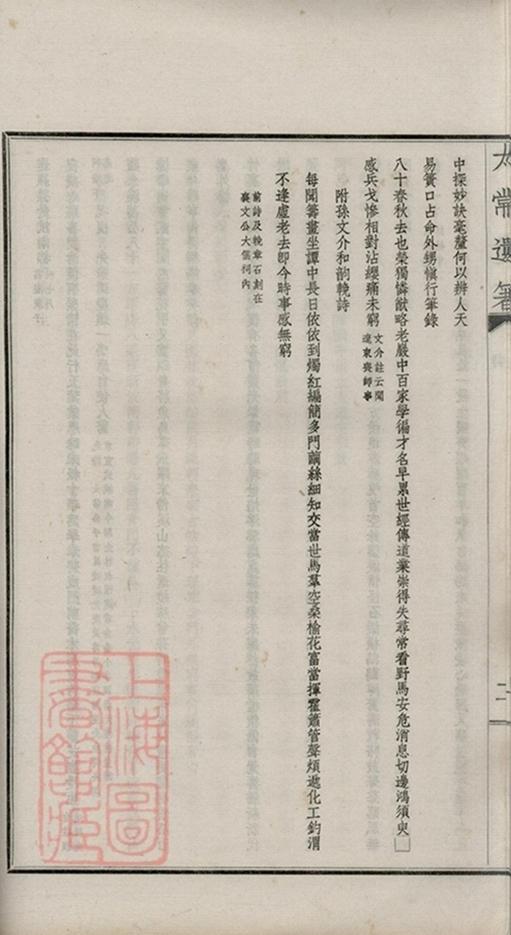 太常遺箸
中探妙訣毫釐何以辨人天
易簀口占命外甥愼行筆錄
八十春秋去也榮獨憐猷略老嚴中百家學徧才名早累世經傳道業崇得失尋常看野馬安危消息切邊鴻須臾□
感兵戈慘相對沾纓痛未窮
文介註云聞
遼東喪師事
附孫文介和韵輓詩
每聞籌畫坐譚中長日依依到燭紅編簡多門繭絲細知交當世馬羣空桑榆花富當揮霍簫管聲煩進化工釣渭
不逢虛老去卽今時事感無窮
前詩及輓章石刻在
襄文公大儒祠內
二
上海圖
書館藏